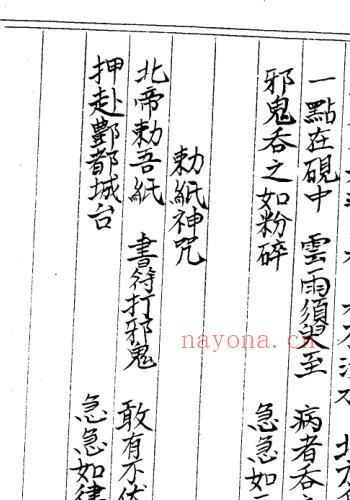 一點在硯中 雲雨須臾至 病者吞
邪鬼吞之如粉碎 急急如
勅紙神咒
北帝勅吾紙 書符打邪鬼 敢有不伏
押赴酆都城台 急急如律
nayona.cn